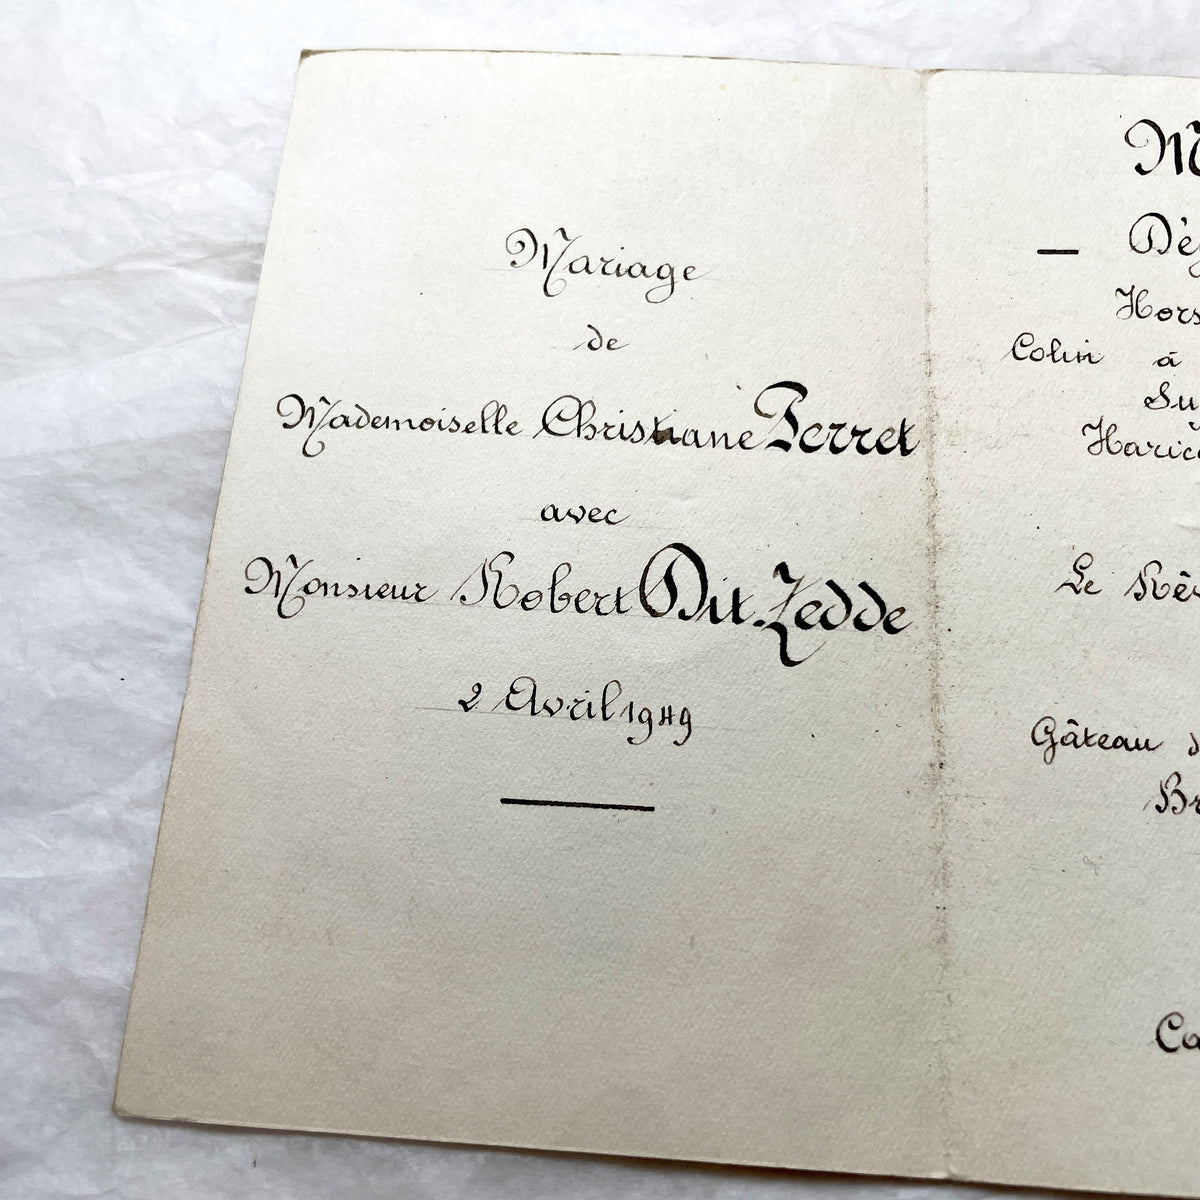 Mariage
de
Mademoiselle Christiane Perret
avec
Monsieur Robert Dit. Zedde
2 Avril 1949
M
— Déj
Hors
Colin à
Su
Harico
Le Rêv
Gâteau d
Br
Ca